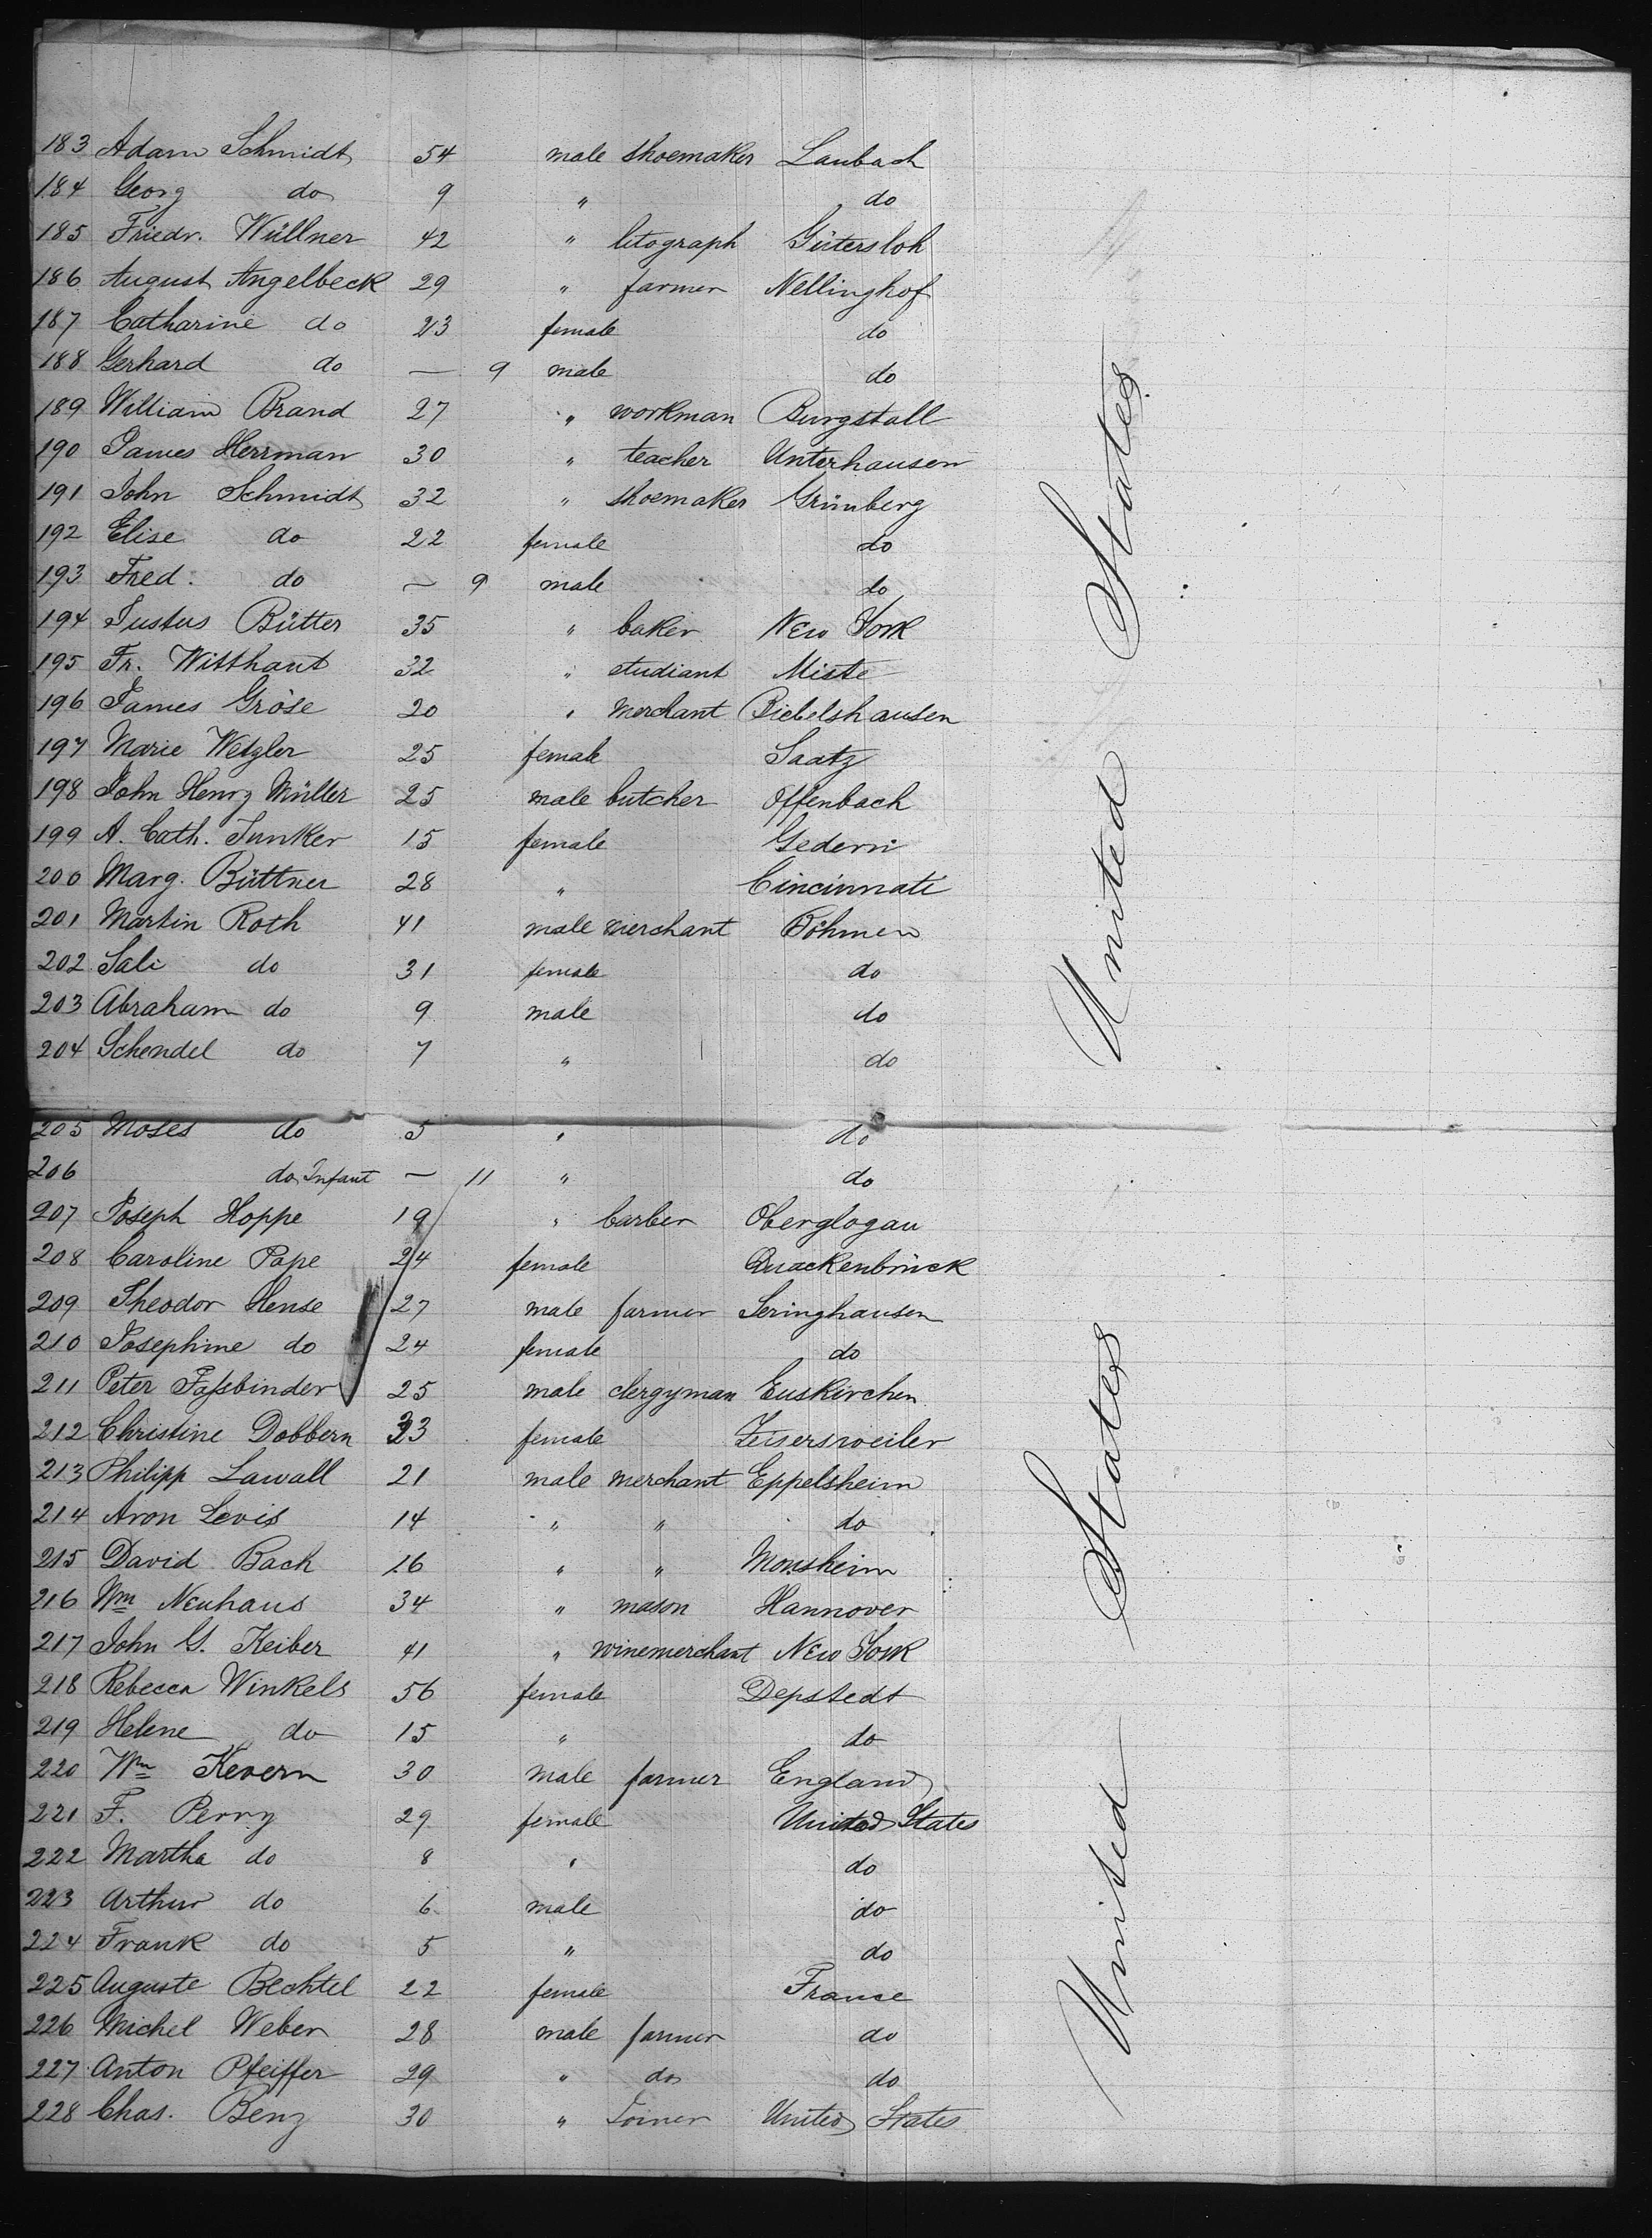 183 Adam Schmidt 54 male shoemaker Laubach
184 Georg do 9 " do
185 Friedr. Wüllner 42 " litograph Gütersloh
186 August Angelbeck 29 " farmer Nellinghof
187 Catharine do 23 female do
188 Gerhard do — 9 male do
189 William Brand 27 " workman Burgstall
190 James Herrman 30 " teacher Unterhausen
191 John Schmidt 32 " shoemaker Grünberg
192 Elise do 22 female do
193 Fred. do — 9 male do
194 Justus Bütter 35 " baker New York
195 Fr. Witthaut 32 " studiant Miste
196 James Gröse 20 " merchant Biebelshausen
197 Marie Wetzler 25 female Saatz
198 John Henry Müller 25 male butcher Offenbach
199 A. Cath. Junker 15 female Gedern
200 Marg. Büttner 28 " Cincinnati
201 Martin Roth 41 male merchant Böhmen
202 Sali do 31 female do
203 Abraham do 9 male do
204 Schendel do 7 " do
205 Moses do 5 " do
206 do Infant — 11 " do
207 Joseph Hoppe 19 " barber Oberglogau
208 Caroline Pape 24 female Quackenbrück
209 Theodor Hense 27 male farmer Seringhausen
210 Josephine do 24 female do
211 Peter Faßbinder 25 male clergyman Euskirchen
212 Christine Dobbern 23 female Zeisersweiler
213 Philipp Lawall 21 male merchant Eppelsheim
214 Aron Levis 14 " " do
215 David Back 16 " " Monsheim
216 Wm Neuhaus 34 " mason Hannover
217 John G. Keiber 41 " winemerchant New York
218 Rebecca Winkels 56 female Depstedt
219 Helene do 15 " do
220 Wm Kevern 30 male farmer England
221 F. Perry 29 female United States
222 Martha do 8 " do
223 Arthur do 6 male do
224 Frank do 5 " do
225 Auguste Bechtel 22 female France
226 Michel Weber 28 male farmer do
227 Anton Pfeiffer 29 " do do
228 Chas. Benz 30 " Joiner United States
United States
United States